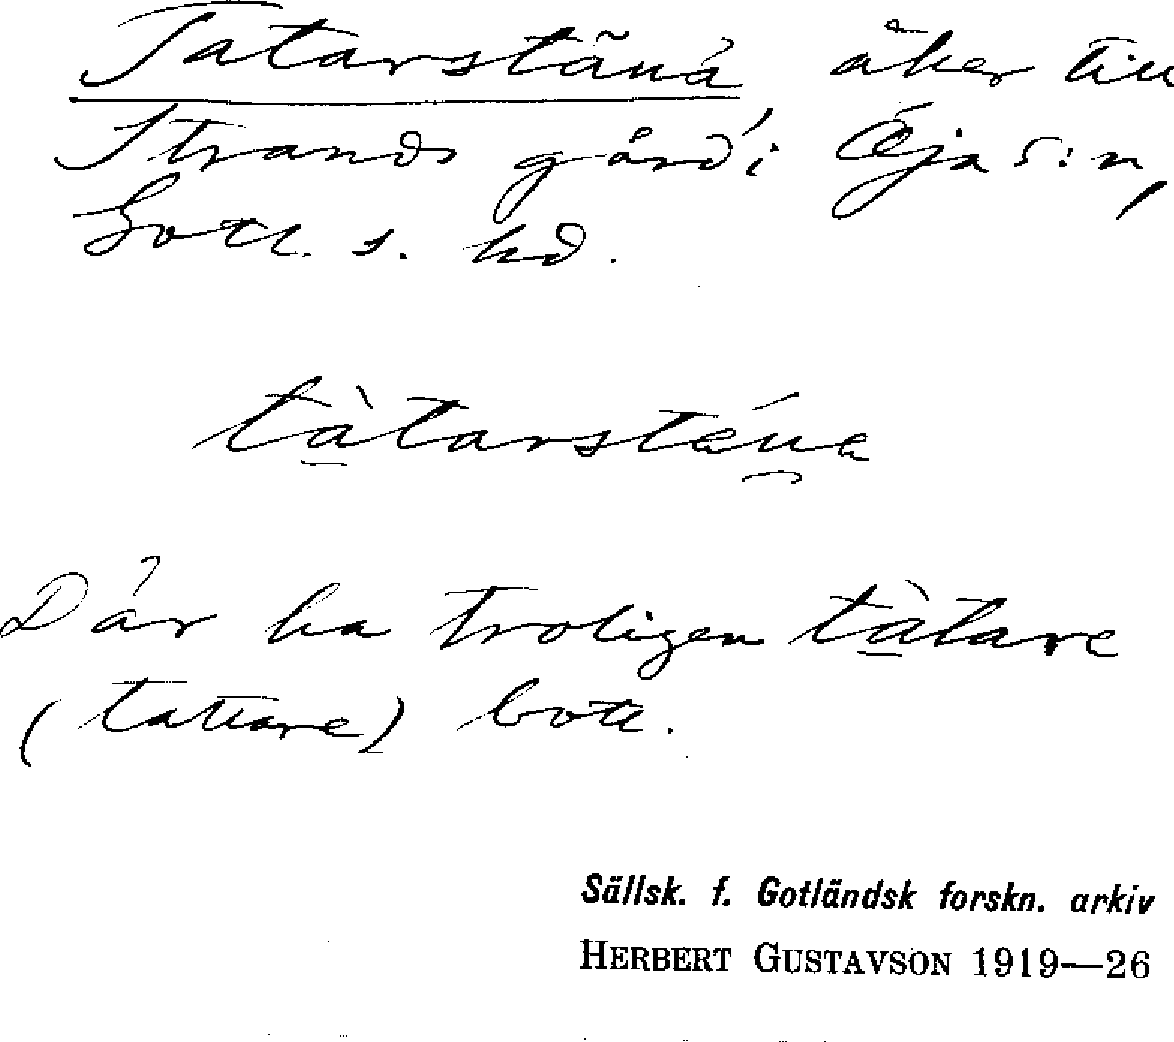 Tatarstäná åker till
Strands gård i Öja s:n,
Gotl. s. hd.
tàtarstáua
Där ha troligen tàtare
(tattare) bott.
Sällsk. f. Gotländsk forskn. arkiv
HERBERT GUSTAVSON 1919—26